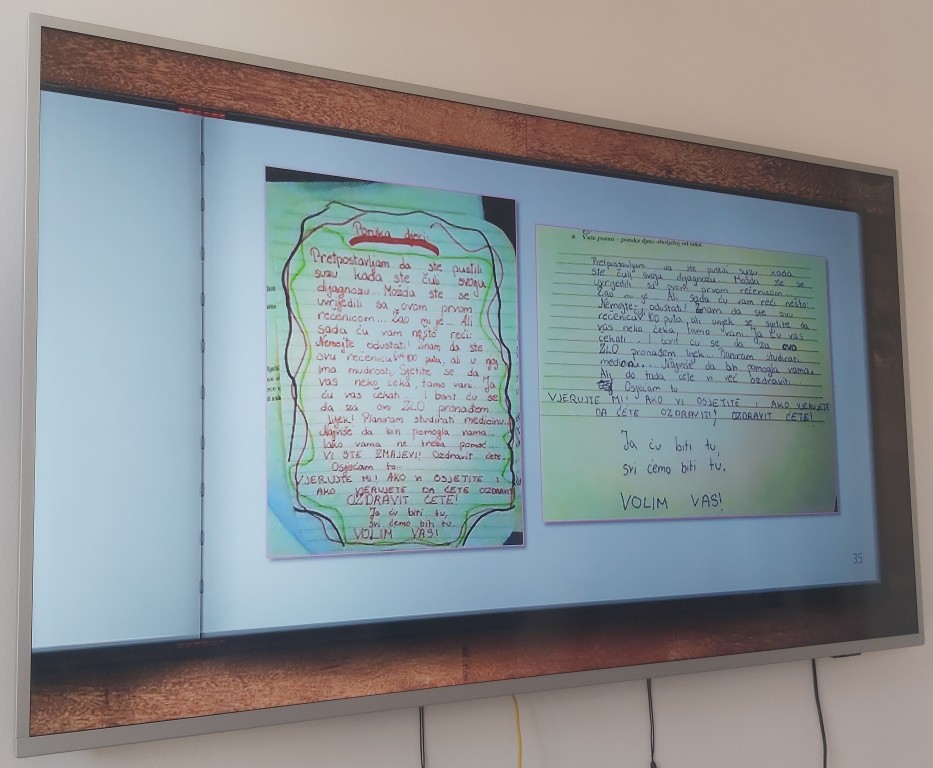 Poruka djeci:
Pretpostavljam da ste pustili
suzu kada ste čuli svoju
dijagnozu... Možda ste se
uvrijedili sa ovom prvom
rečenicom... Žao mi je... Ali
sada ću vam nešto reći:
Nemojte odustati! Znam da ste
ovu rečenicu čuli 100 puta, ali u njoj
ima mudrosti. Sjetite se da
vas neko čeka, tamo vani. Ja
ću vas čekati... I borit ću se
da za ovo ZLO pronađem
lijek! Planiram studirati medicinu...
Najviše da bih pomogla vama...
Iako vama ne treba pomoć...
VI STE ZMAJEVI! Ozdravit ćete.
Osjećam to...
VJERUJTE MI! AKO VI OSJETITE I
AKO VJERUJETE DA ĆETE OZDRAVIT
OZDRAVIT ĆETE!
Ja ću biti tu,
svi ćemo biti tu.
VOLIM VAS!
6. Vaše pismo – poruka djeci oboljeloj od raka:
Pretpostavljam da ste pustili suzu kada
ste čuli svoju dijagnozu. Možda ste se
uvrijedili sa ovom prvom rečenicom...
Žao mi je... Ali sada ću vam reć nešto:
Nemojte odustati! Znam da ste ovu
rečenicu 100 puta, ali uvijek se sjetite da
vas neko čeka, tamo vani. Ja ću vas
čekati... I borit ću se da za ovo
ZLO pronađem lijek... Planiram studirati
medicinu... Najviše da bih pomogla vama.
Ali do tada ćete vi već ozdraviti.
Osjećam to
VJERUJTE MI! AKO VI OSJETITE I AKO VJERUJETE
DA ĆETE OZDRAVITI, OZDRAVIT ĆETE!
Ja ću biti tu,
svi ćemo biti tu.
VOLIM VAS!
35